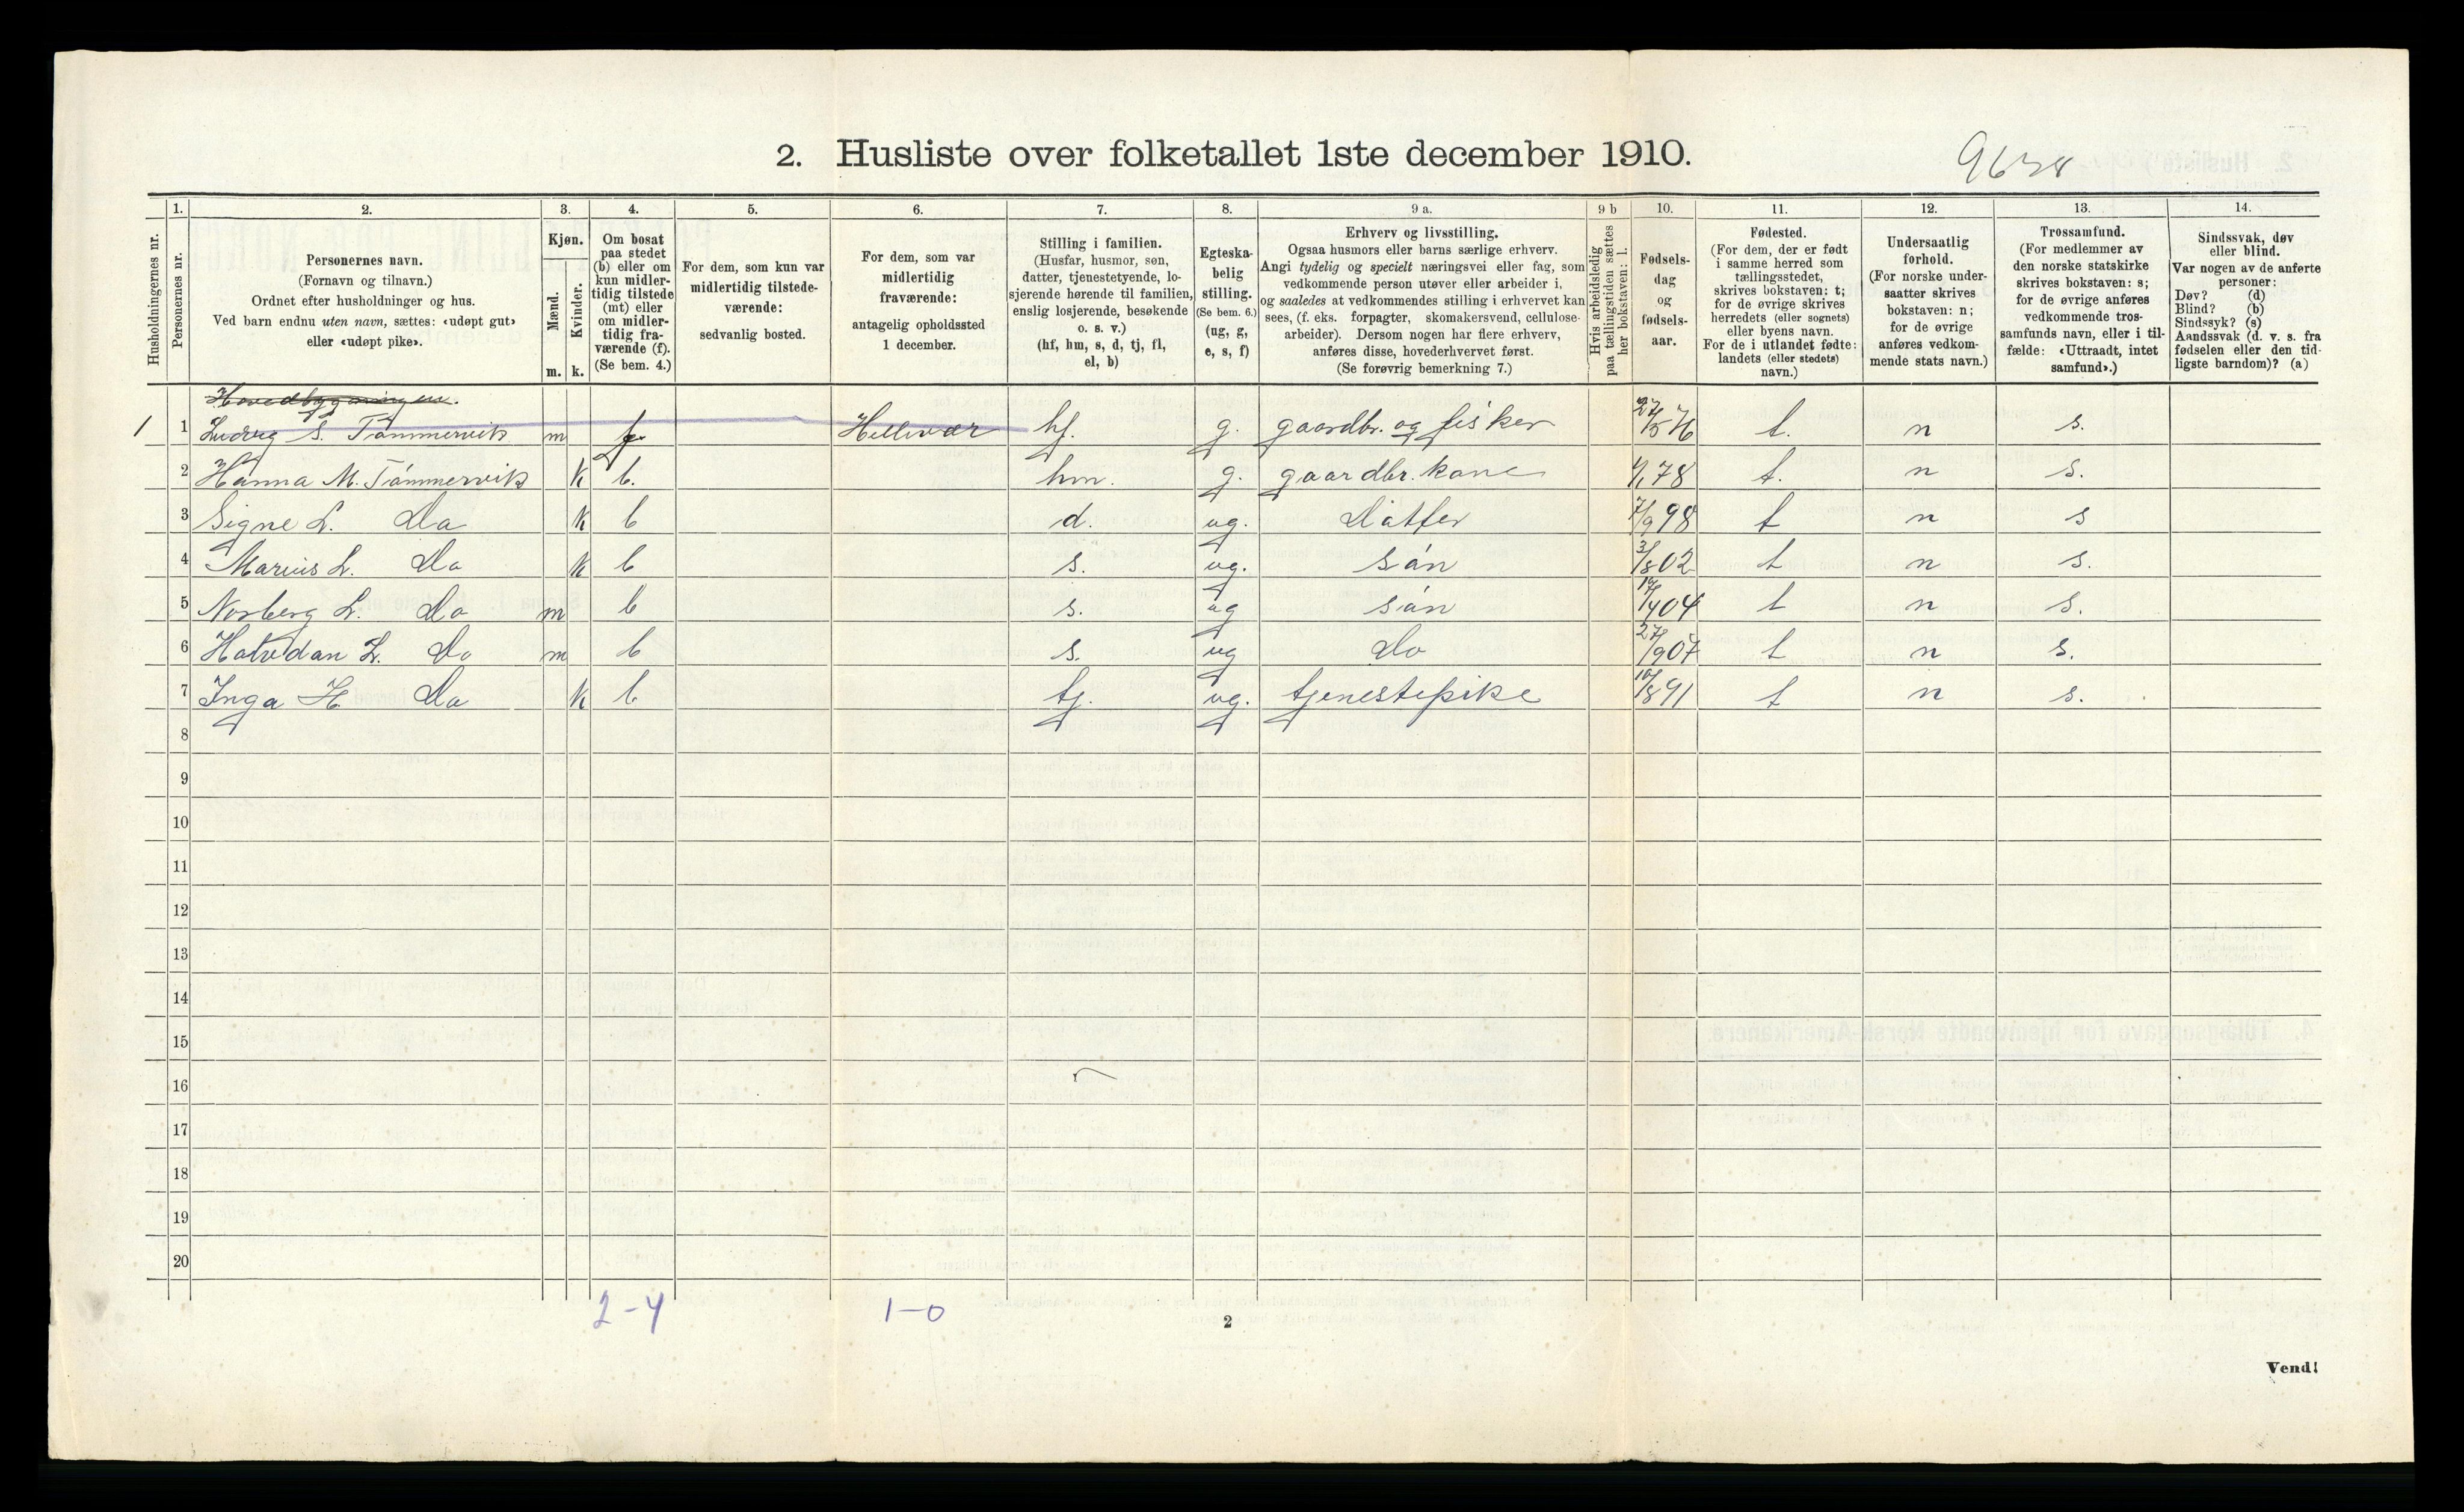 2. Husliste over folketallet 1ste december 1910.
Husholdningernes nr.
1. Personernes nr.
2. Personernes navn.
(Fornavn og tilnavn.)
Ordnet efter husholdninger og hus.
Ved barn endnu uten navn, sættes: «udøpt gut»
eller «udøpt pike».
3. Kjøn.
Mænd. m.
Kvinder. k.
4. Om bosat
paa stedet
(b) eller om
kun midler-
tidig tilstede
(mt) eller
om midler-
tidig fra-
værende (f).
(Se bem. 4.)
5. For dem, som kun var
midlertidig tilstede-
værende:
sedvanlig bosted.
6. For dem, som var
midlertidig
fraværende:
antagelig opholdssted
1 december.
7. Stilling i familien.
(Husfar, husmor, søn,
datter, tjenestetyende, lo-
sjerende hørende til familien,
enslig losjerende, besøkende
o. s. v.)
(hf, hm, s, d, tj, fl,
el, b)
8. Egteska-
belig
stilling.
(Se bem. 6.)
(ug, g,
e, s, f)
9 a. Erhverv og livsstilling.
Ogsaa husmors eller barns særlige erhverv.
Angi tydelig og specielt næringsvei eller fag, som
vedkommende person utøver eller arbeider i,
og saaledes at vedkommendes stilling i erhvervet kan
sees, (f. eks. forpagter, skomakersvend, cellulose-
arbeider). Dersom nogen har flere erhverv,
anføres disse, hovederhvervet først.
(Se forøvrig bemerkning 7.)
9 b Hvis arbeidsledig
paa tællingstiden sættes
her bokstaven: l.
10. Fødsels-
dag
og
fødsels-
aar.
11. Fødested.
(For dem, der er født
i samme herred som
tællingsstedet,
skrives bokstaven: t;
for de øvrige skrives
herredets (eller sognets)
eller byens navn.
For de i utlandet fødte:
landets (eller stedets)
navn.)
12. Undersaatlig
forhold.
(For norske under-
saatter skrives
bokstaven: n;
for de øvrige
anføres vedkom-
mende stats navn.)
13. Trossamfund.
(For medlemmer av
den norske statskirke
skrives bokstaven: s;
for de øvrige anføres
vedkommende tros-
samfunds navn, eller i til-
fælde: «Uttraadt, intet
samfund».)
14. Sindssvak, døv
eller blind.
Var nogen av de anførte
personer:
Døv? (d)
Blind? (b)
Sindssyk? (s)
Aandssvak (d. v. s. fra
fødselen eller den tid-
ligste barndom)? (a)
Hovedbygningen.
1 1 Ludvig S. Tømmervik m f Hellivær hf. g. gaardbr. og fisker 27/5 76 t. n s.
2 Hanna M. Tømmervik k b. hm. g. gaardbr. kone 4/1 78 t. n s.
3 Signe L. Do k b d. ug. Datter 7/9 98 t n s
4 Marius L. Do k b s. ug. søn 3/8 02 t n s.
5 Norberg L. Do m b s. ug søn 04 t n s.
6 Halvdan L. Do m b s. ug Do 27/9 07 t n s.
7 Inga H Do k b tj. ug. tjenestepike 10/8 91 t n s.
8
9
10
11
12
13
14
15
16
17
18
19
20
2-4 1-0
2
Vend!